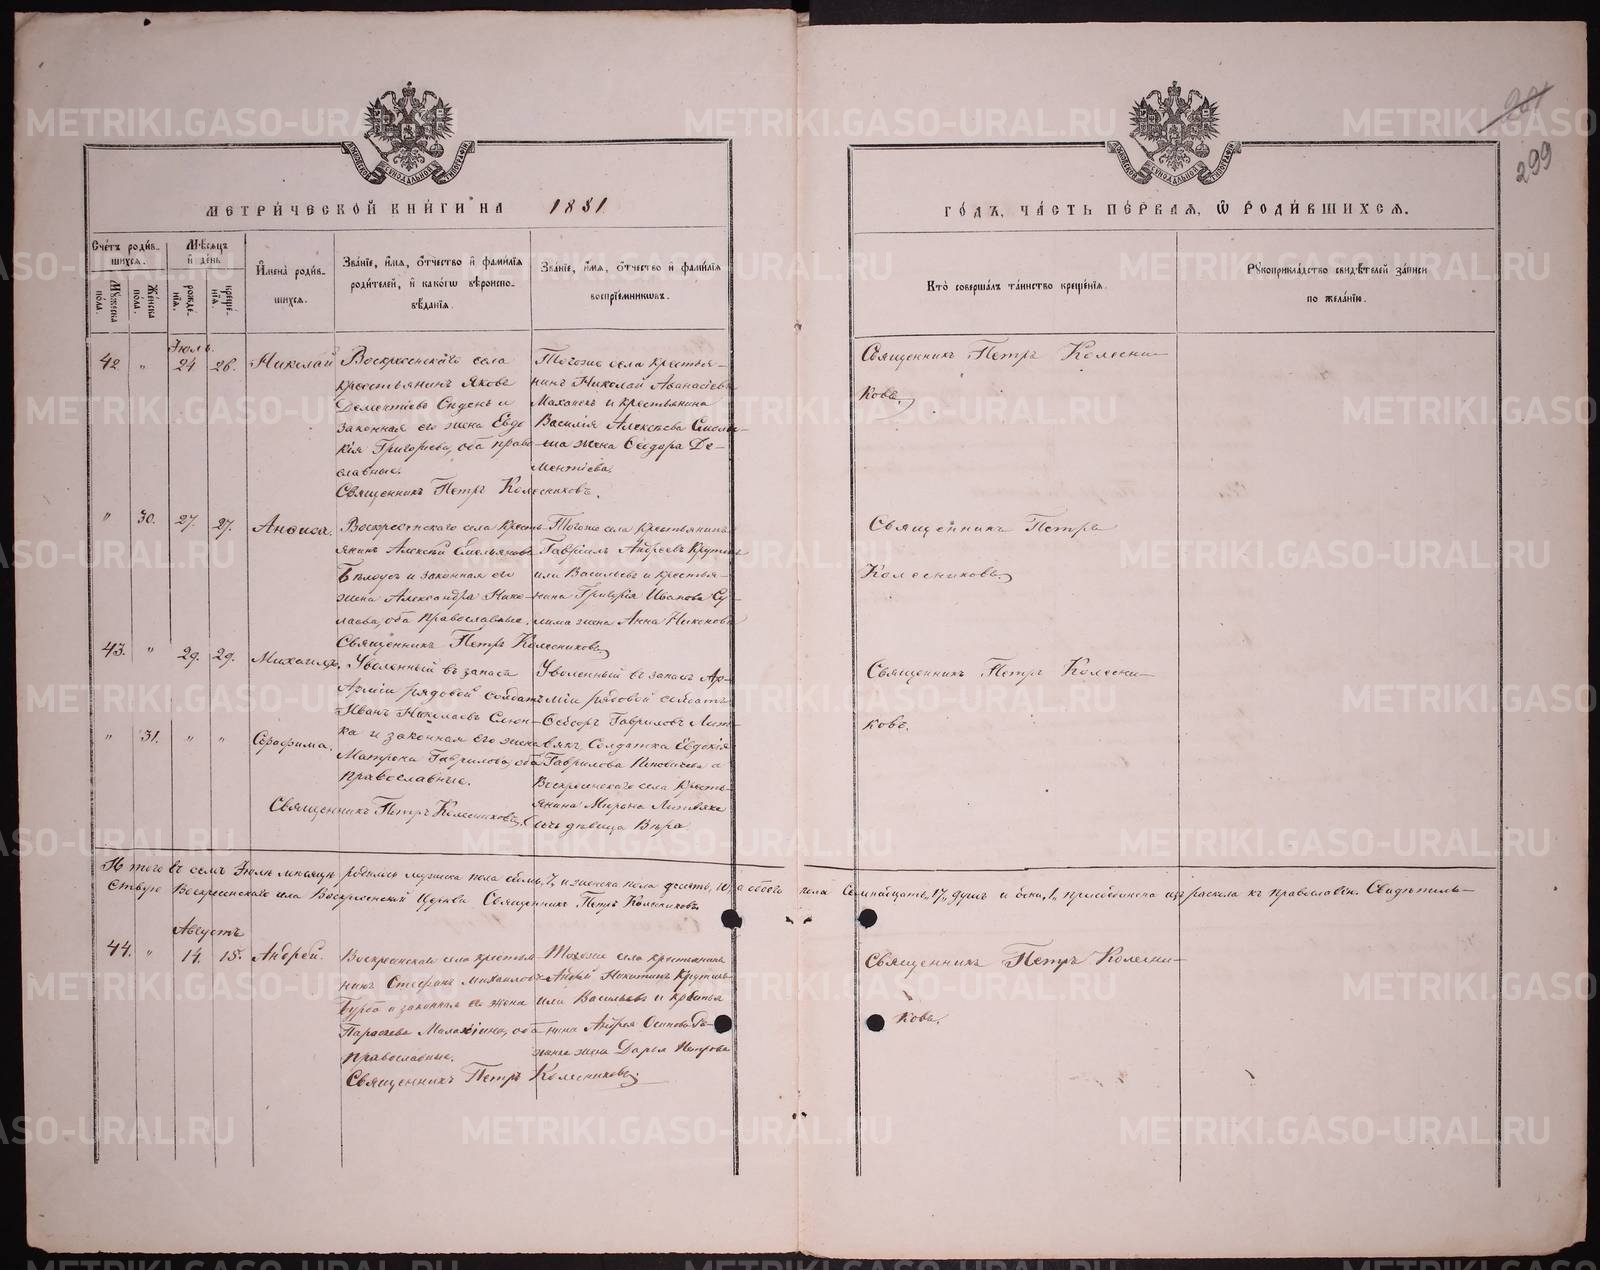 МЕТРИЧЕСКОЙ КНИГИ НА 1881
ГОДЪ, ЧАСТЬ ПЕРВАЯ, Ѡ РОДИВШИХСЯ.
299
Счетъ родив-
шихся.
Мѣсяцъ
и день
Мужеска
пола.
Женска
пола.
рожде-
нія.
креще-
нія.
Имена родив-
шихся.
Званіе, имя, отчество и фамилія
родителей, и какогѡ вѣроиспо-
вѣданія.
Званіе, имя, отчество и фамилія
воспріемниковъ.
Кто совершалъ таинство крещенія.
Рукоприкладство свидѣтелей записи
по желанію.
Іюль
42 " 24 26. Николай
Воскресенскаго села
крестьянинъ Яковъ
Дементіевъ и
законная его жена Евдо
кія Григорьева, оба право
славные.
Священникъ Петръ Колесниковъ.
Тогоже села крестья-
нинъ Николай Аванасіевъ
и крестьянина
Василія Алексѣева
жена Ѳеодора Де-
ментіева.
Священникъ Петръ Колесни-
ковъ.
" 30. 27. 27. Анѳиса.
Воскресенскаго села кресть-
янинъ Алексѣй Емельяновъ
Бѣлоусъ и законная его
жена Александра Нико-
лаева, оба православные.
Священникъ Петръ Колесниковъ
Тогоже села крестьянинъ
Гавріилъ Андреевъ
или Васильевъ и крестья-
нина Григорія Иванова
жена Анна Никонова
Священникъ Петръ
Колесниковъ.
43. " 29. 29. Михаилъ,
" 31. " " Серафима.
Уволенный въ запасъ
Арміи рядовой солдатъ
Иванъ Николаевъ
и законная его жена
Матрона Гаврилова, оба
православные.
Священникъ Петръ Колесниковъ.
Уволенный въ запасъ Ар-
міи рядовой солдатъ
Ѳеодоръ Гавриловъ Лит-
вякъ, Солдатка Евдокія
Гаврилова и
Воскресенскаго села кресть-
янина Мирона Литвяка
дочь дѣвица Вѣра.
Священникъ Петръ Колесни-
ковъ.
Итого въ семъ Іюлѣ мѣсяцѣ родилось мужеска пола семь, 7, и женска пола десять, 10, а обоего пола Семнадцать, 17, душъ и одна, 1, присоединена изъ раскола къ православію. Свидѣтель-
ствую Воскресенскаго села Воскресенской Церкви Священникъ Петръ Колесниковъ.
Августъ
44. " 14. 15. Андрей.
Воскресенскаго села крестья-
нинъ Стефанъ Михаиловъ
Бурба и законная его жена
Параскева Малахіина, оба
православные.
Священникъ Петръ Колесниковъ
Тогоже села крестьянинъ
Андрей Никитинъ
или Васильевъ и крестья
нина Андрея Осипова
жена Дарья Петрова
Священникъ Петръ Колесни-
ковъ.